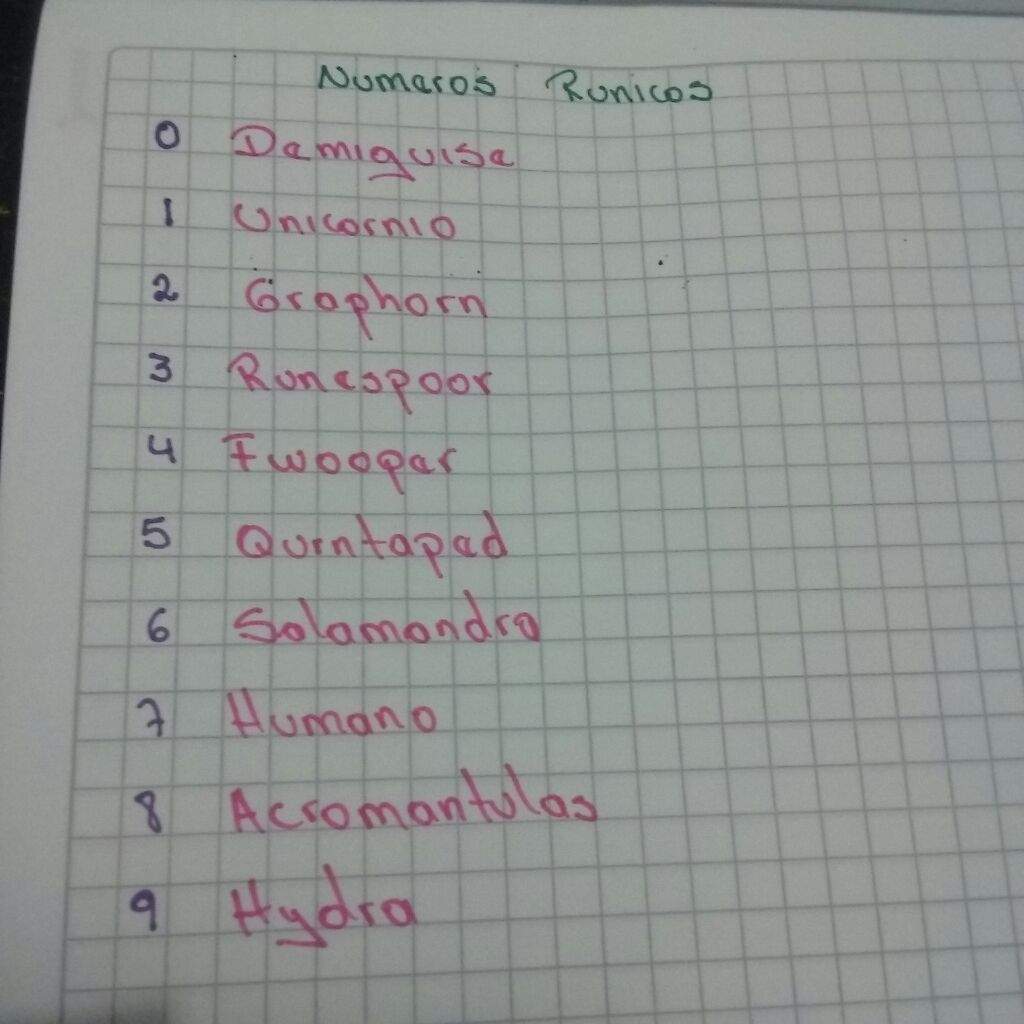 Numeros Runicos
0 Demiguise
1 Unicornio
2 Graphorn
3 Runespoor
4 Fwooper
5 Quintaped
6 Salamandra
7 Humano
8 Acromantulas
9 Hydra